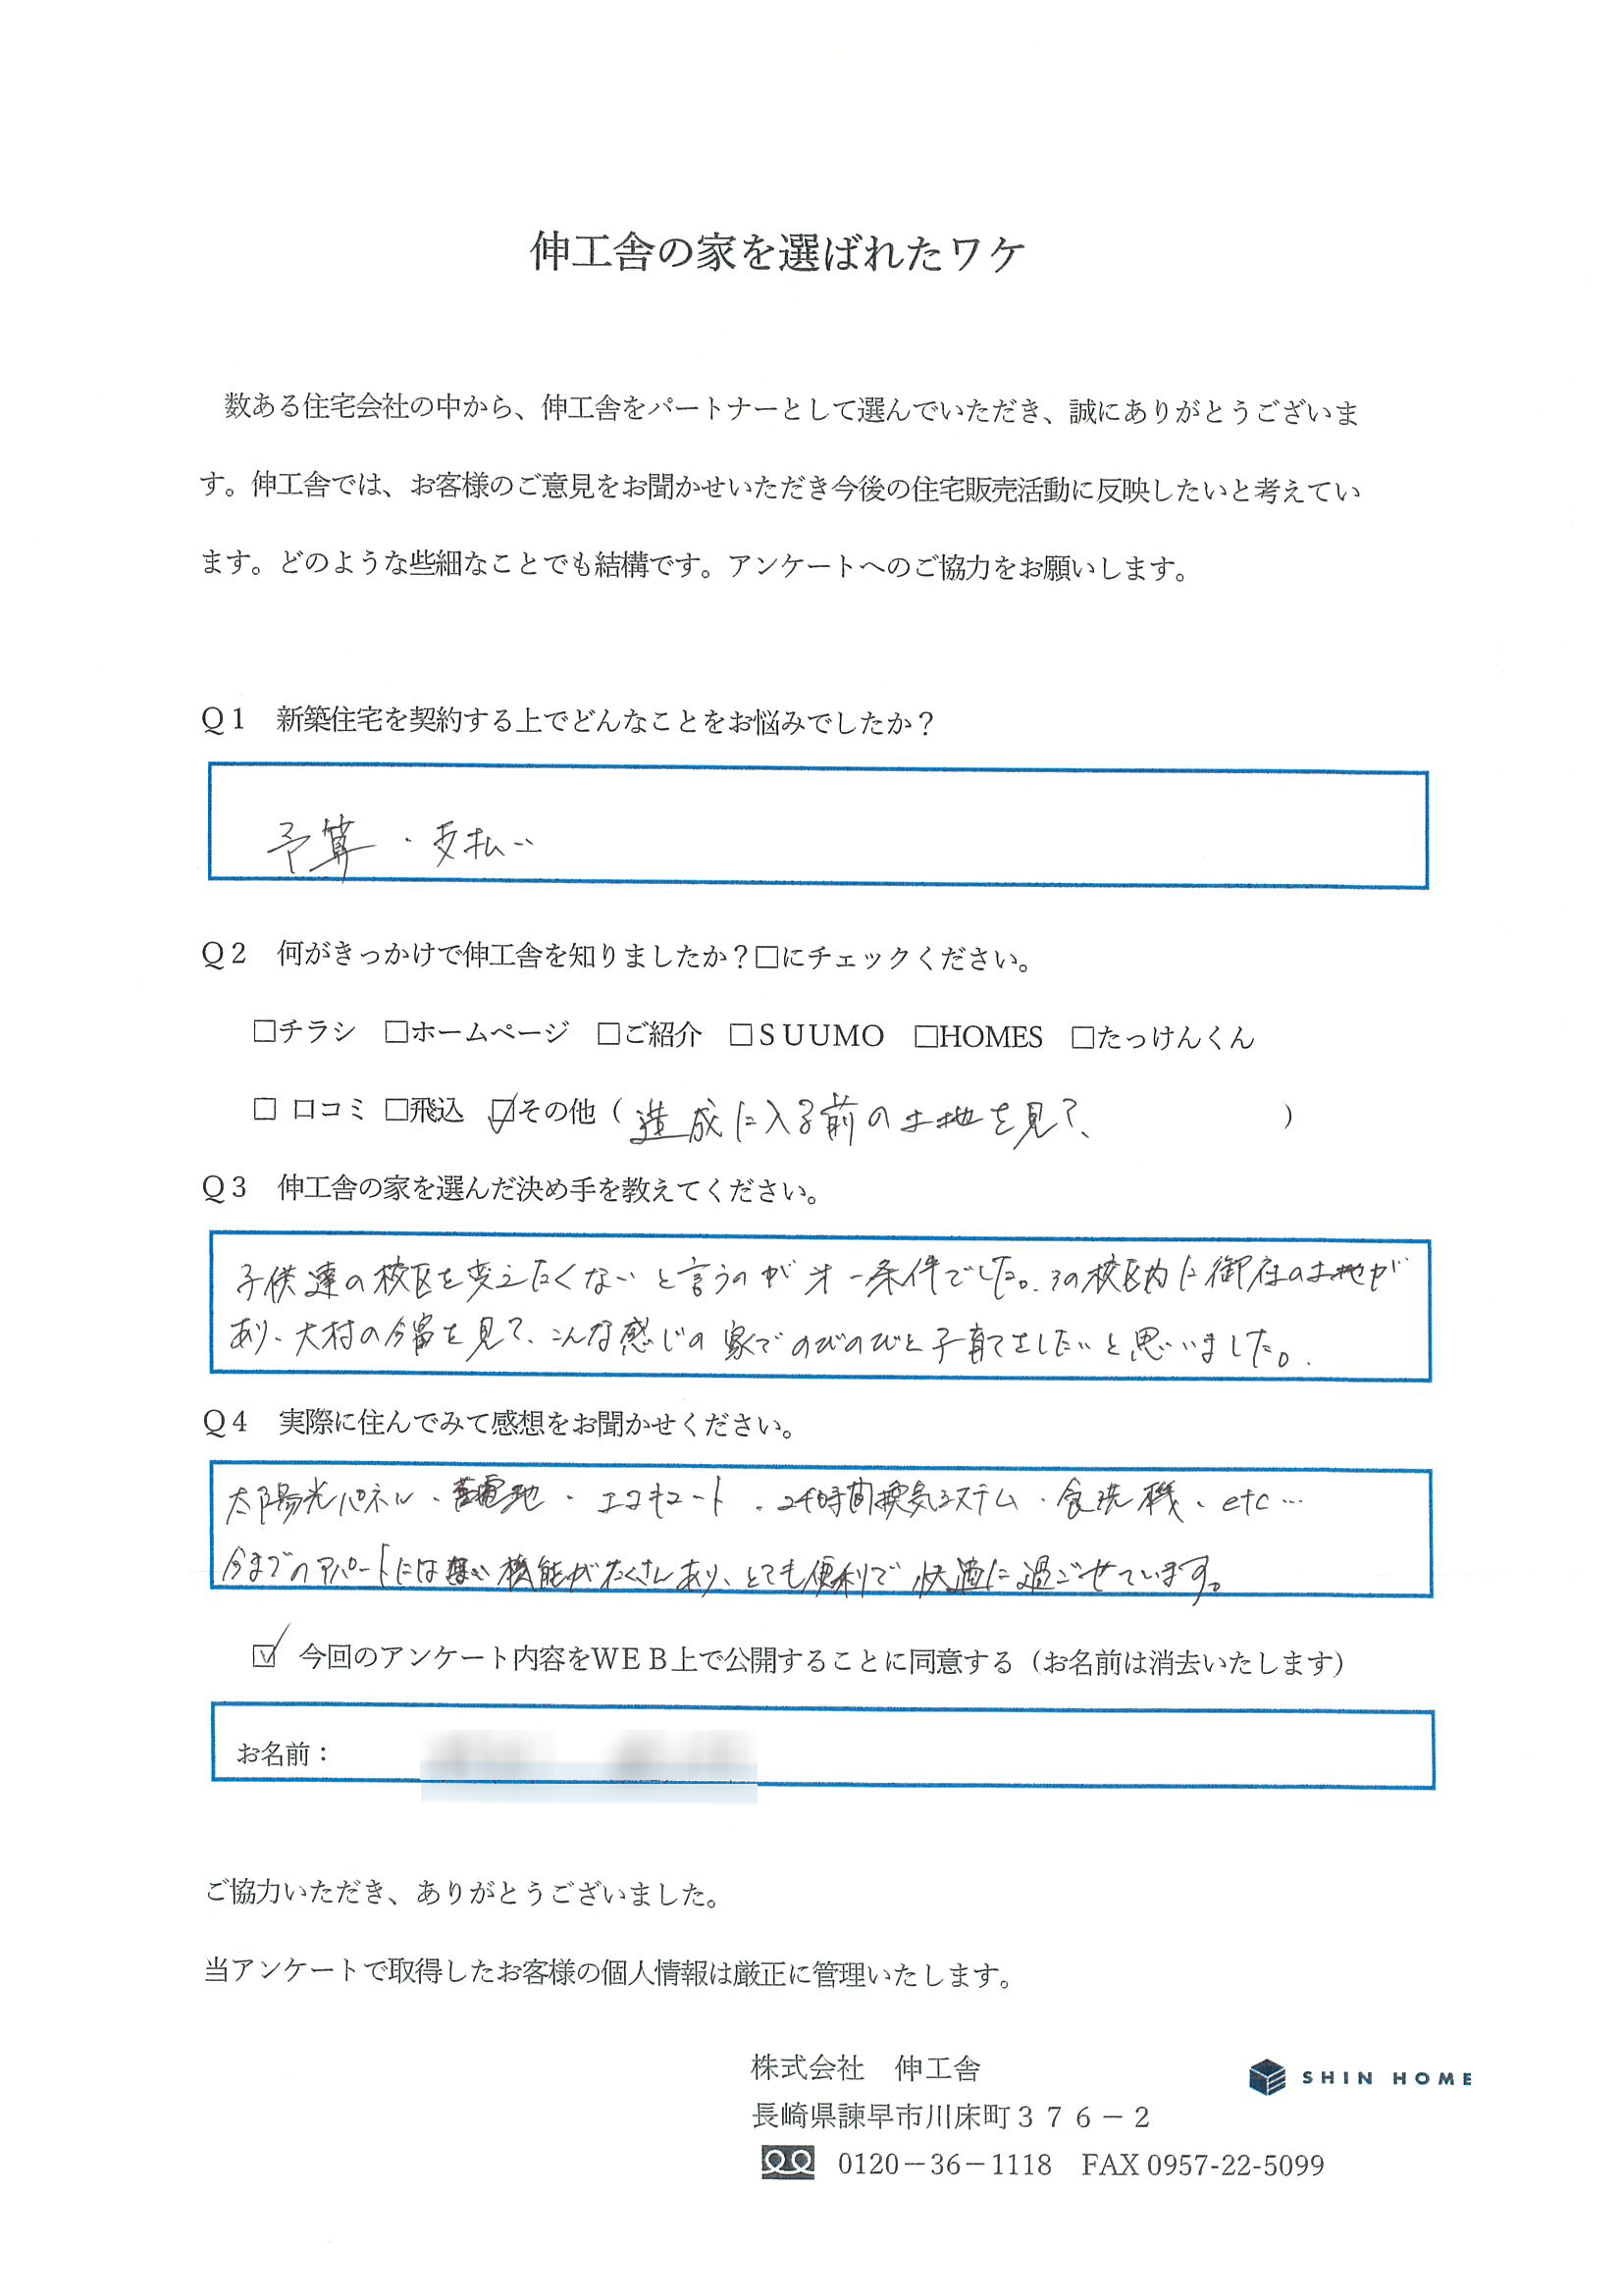 伸工舎の家を選ばれたワケ
数ある住宅会社の中から、伸工舎をパートナーとして選んでいただき、誠にありがとうございま
す。伸工舎では、お客様のご意見をお聞かせいただき今後の住宅販売活動に反映したいと考えてい
ます。どのような些細なことでも結構です。アンケートへのご協力をお願いします。
Q1 新築住宅を契約する上でどんなことをお悩みでしたか？
予算・支払い
Q2 何がきっかけで伸工舎を知りましたか？□にチェックください。
□チラシ □ホームページ □ご紹介 □SUUMO □HOMES □たっけんくん
□ 口コミ □飛込 ☑その他（造成に入る前の土地を見て、）
Q3 伸工舎の家を選んだ決め手を教えてください。
子供達の校区を変えたくないと言うのが才一条件でした。その校区内に御社の土地が
あり、大村の今富を見て、こんな感じの家でのびのびと子育てをしたいと思いました。
Q4 実際に住んでみて感想をお聞かせください。
太陽光パネル・蓄電池・エコキュート・24時間換気システム・食洗機、etc…
今までのアパートには無い機能がたくさんあり、とても便利で快適に過ごせています。
☑ 今回のアンケート内容をWEB上で公開することに同意する（お名前は消去いたします）
お名前：
ご協力いただき、ありがとうございました。
当アンケートで取得したお客様の個人情報は厳正に管理いたします。
株式会社 伸工舎
SHIN HOME
長崎県諫早市川床町３７６－２
0120－36－1118 FAX 0957-22-5099